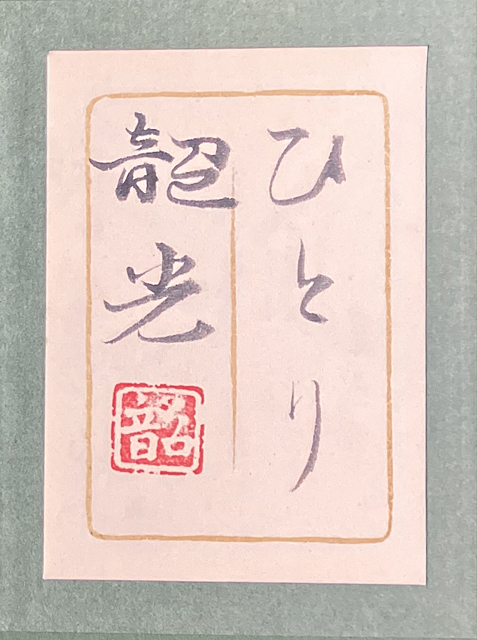 ひとり
韶光
韶